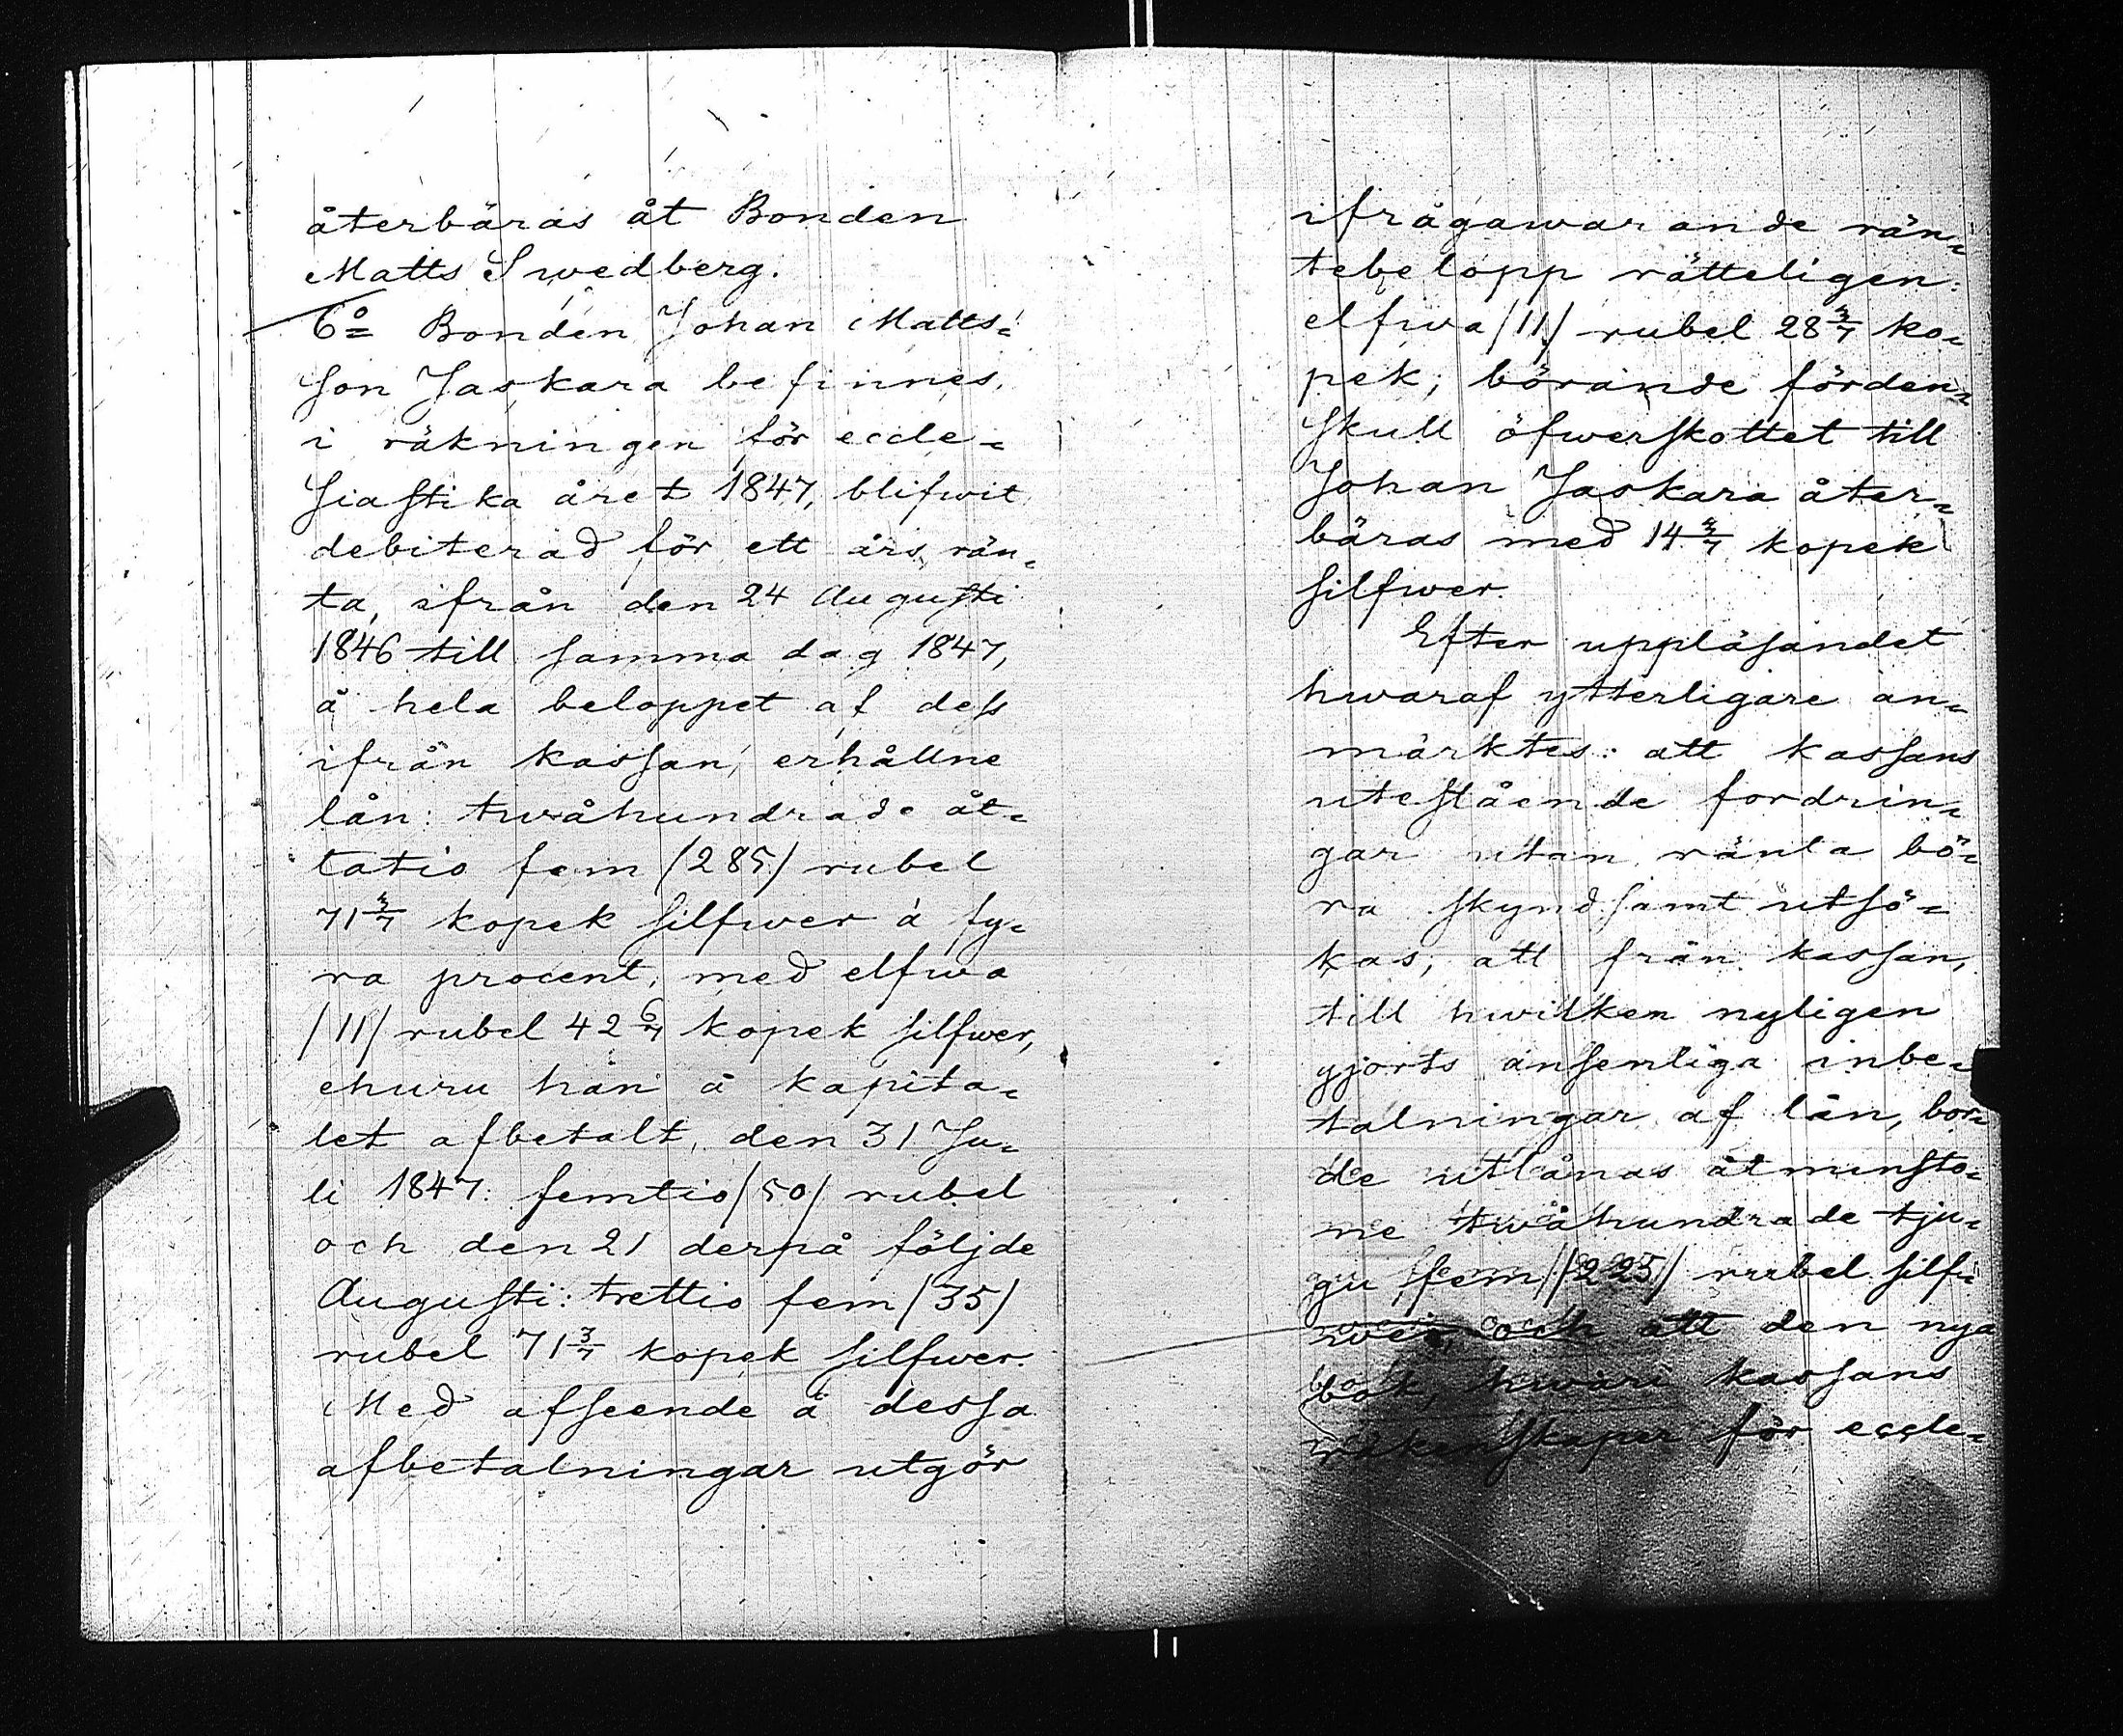 återbäras åt Bonden
Matts Swedberg.
6º Bonden Johan Matts-
son Jaskara befinnes,
i räkningen för eccle-
siastika året 1847, blifwit
debiterad för ett års rän-
ta, ifrån den 24 Augusti
1846 till samma dag 1847,
å hela beloppet af dess
ifrån kassan, erhållne
lån: twåhundrade åt-
tatio fem /285/ rubel
71 3/7 kopek silfwer à fy-
ra procent, med elfwa
/11/ rubel 42 6/7 kopek silfwer,
ehuru han å kapita-
let afbetalt, den 31 Ju-
li 1847: femtio /50/ rubel
och den 21 derpå följde
Augusti: trettio fem /35/
rubel 71 3/7 kopek silfwer.
Med afseende å dessa
afbetalningar utgör
ifrågawarande rän-
tebelopp rätteligen:
elfwa /11/ rubel 28 3/7 ko-
pek; börande förden-
skull öfwerskottet till
Johan Jaskara åter-
bäras med 14 3/7 kopek
silfwer.
Efter uppläsandet
hwaraf ytterligare an-
märktes: att kassans
utestående fordrin-
gar utan ränta bö-
ra skyndsamt utsö-
kas, att från kassan,
till hwilken nyligen
gjorts ansenliga inbe-
talningar af lån, bor-
de utlånas åtminsto-
ne twåhundrade tju-
gu fem /225/ rubel silf-
wer, och att den nya
bok, hwari kassans
räkenskaper för eccle-